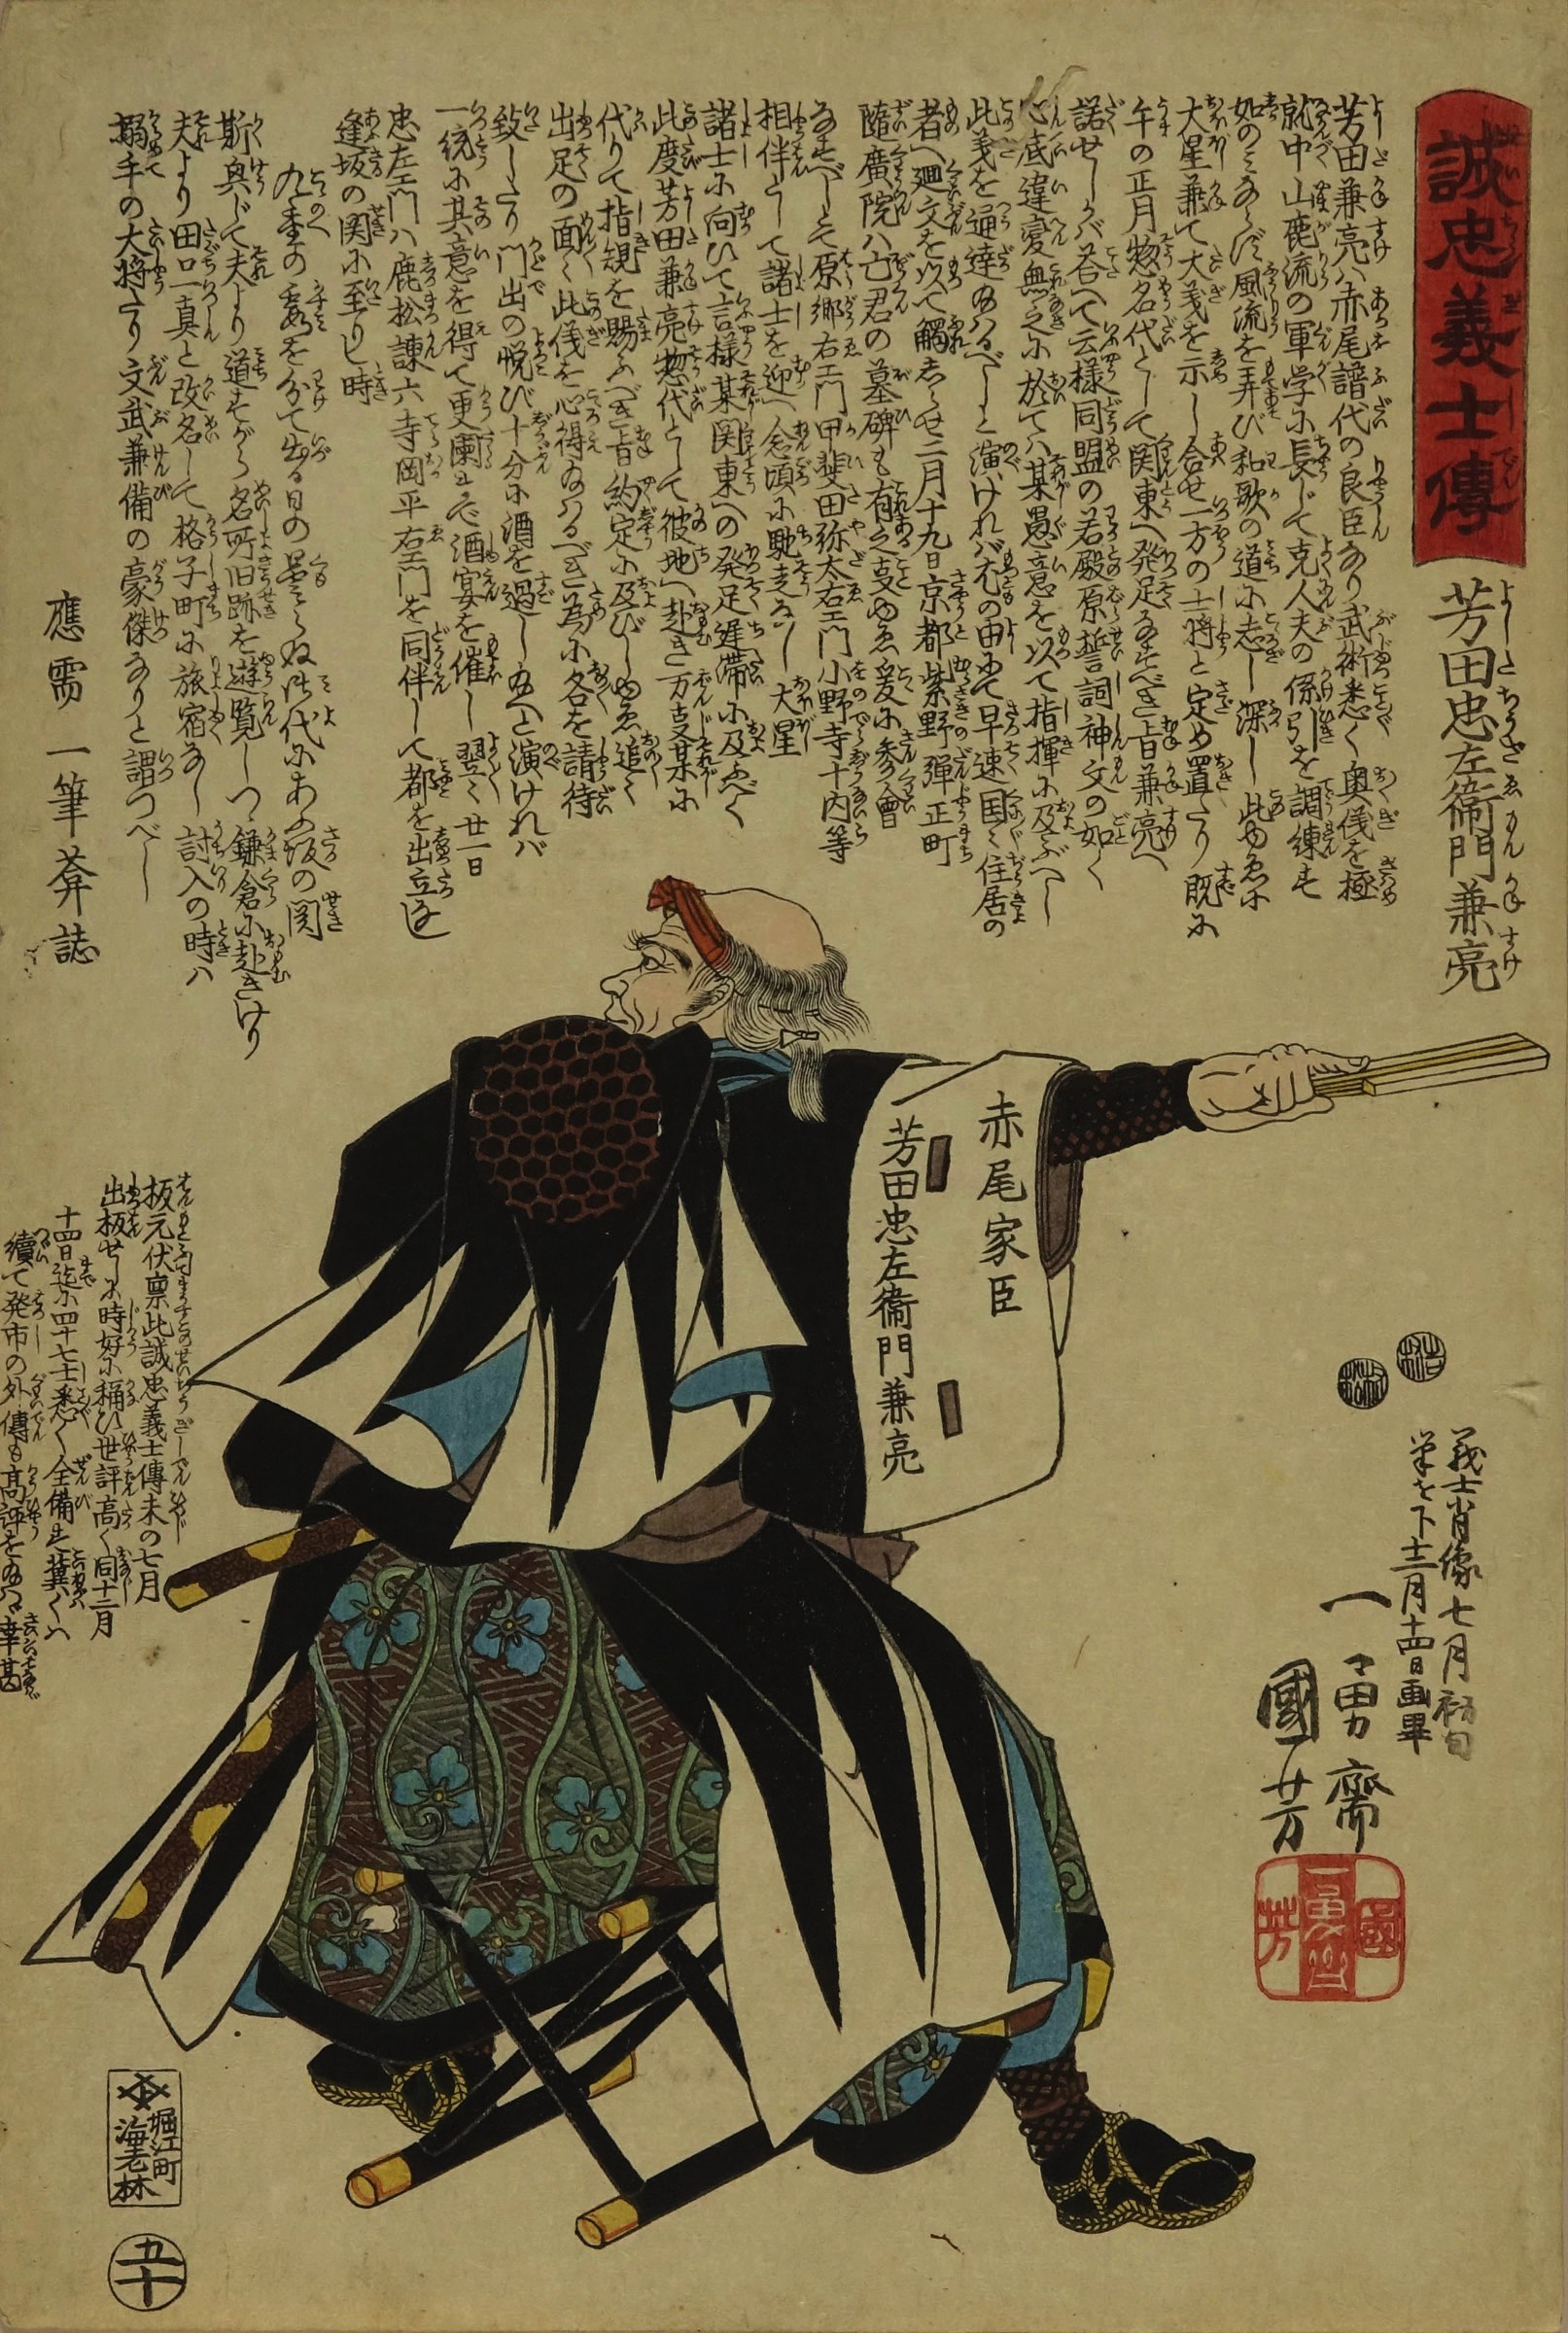 誠忠義士傳
芳田忠左衞門兼亮
芳田兼亮ハ赤尾譜代の良臣なり武術悉く奥儀を極
就中山鹿流の軍学に長じて克人夫の係引を調練す
如のミならず風流を弄び和歌の道に志し深し此ゆゑに
大星兼て大义を示し合せ一方の士将と定め置たり既に
午の正月惣名代として関東へ発足なすべき旨兼亮へ
諾せしかバ答へて云様同盟の若殿原誓詞神文の如く
心底違変無之に於てハ某愚意を以て指揮に及ぶべし
此義を通達あるべしと演けれバ尤の由にて早速国々住居の
者へ廻文を以て觸しらせ二月十九日京都紫野弾正町
隨廣院ハ亡君の墓碑も有之ゆゑ爰に参會
なすべしとて原郷右エ門甲斐田弥太右エ門小野寺十内等
相伴して諸士を迎へ念頃に馳走なし大星
諸士に向ひて言様某関東への発足遅滞に及ぶべく
此度芳田兼亮惣代として彼地へ赴き万支某に
代りて指規を賜ふべき旨約定に及びしゆゑ追々
出足の面々此儀を心得あるべき為に各を請待
致したり門出の悦び十分に酒を過しあへと演けれバ
一統に其意を得て更闌まで酒宴を催し翌廿一日
忠左エ門ハ鹿松諌六寺岡平右エ門を同伴して都を出立なし
逢坂の関に至りし時
九重の春を分て出る日の曇らぬ御代にあふ坂の関
斯興じて夫より道すがら名所旧跡を遊覧しつゝ鎌倉に赴きけり
夫より田口一真と改名して格子町に旅宿なし討入の時ハ
搦手の大将たり文武兼備の豪傑なりと謂つべし
應需 一筆葊誌
赤尾家臣
芳田忠左衞門兼亮
板元伏禀此誠忠義士傳未の七月
出板せしに時好に稱ひ世評高く同十二月
十四日迄に四十七士悉く全備す冀くハ
續て発市の外傳も高評をあハゞ幸甚
義士肖像七月初旬
筆を下十二月十四日画畢
一勇齋
國芳
堀江町
海老林
五十